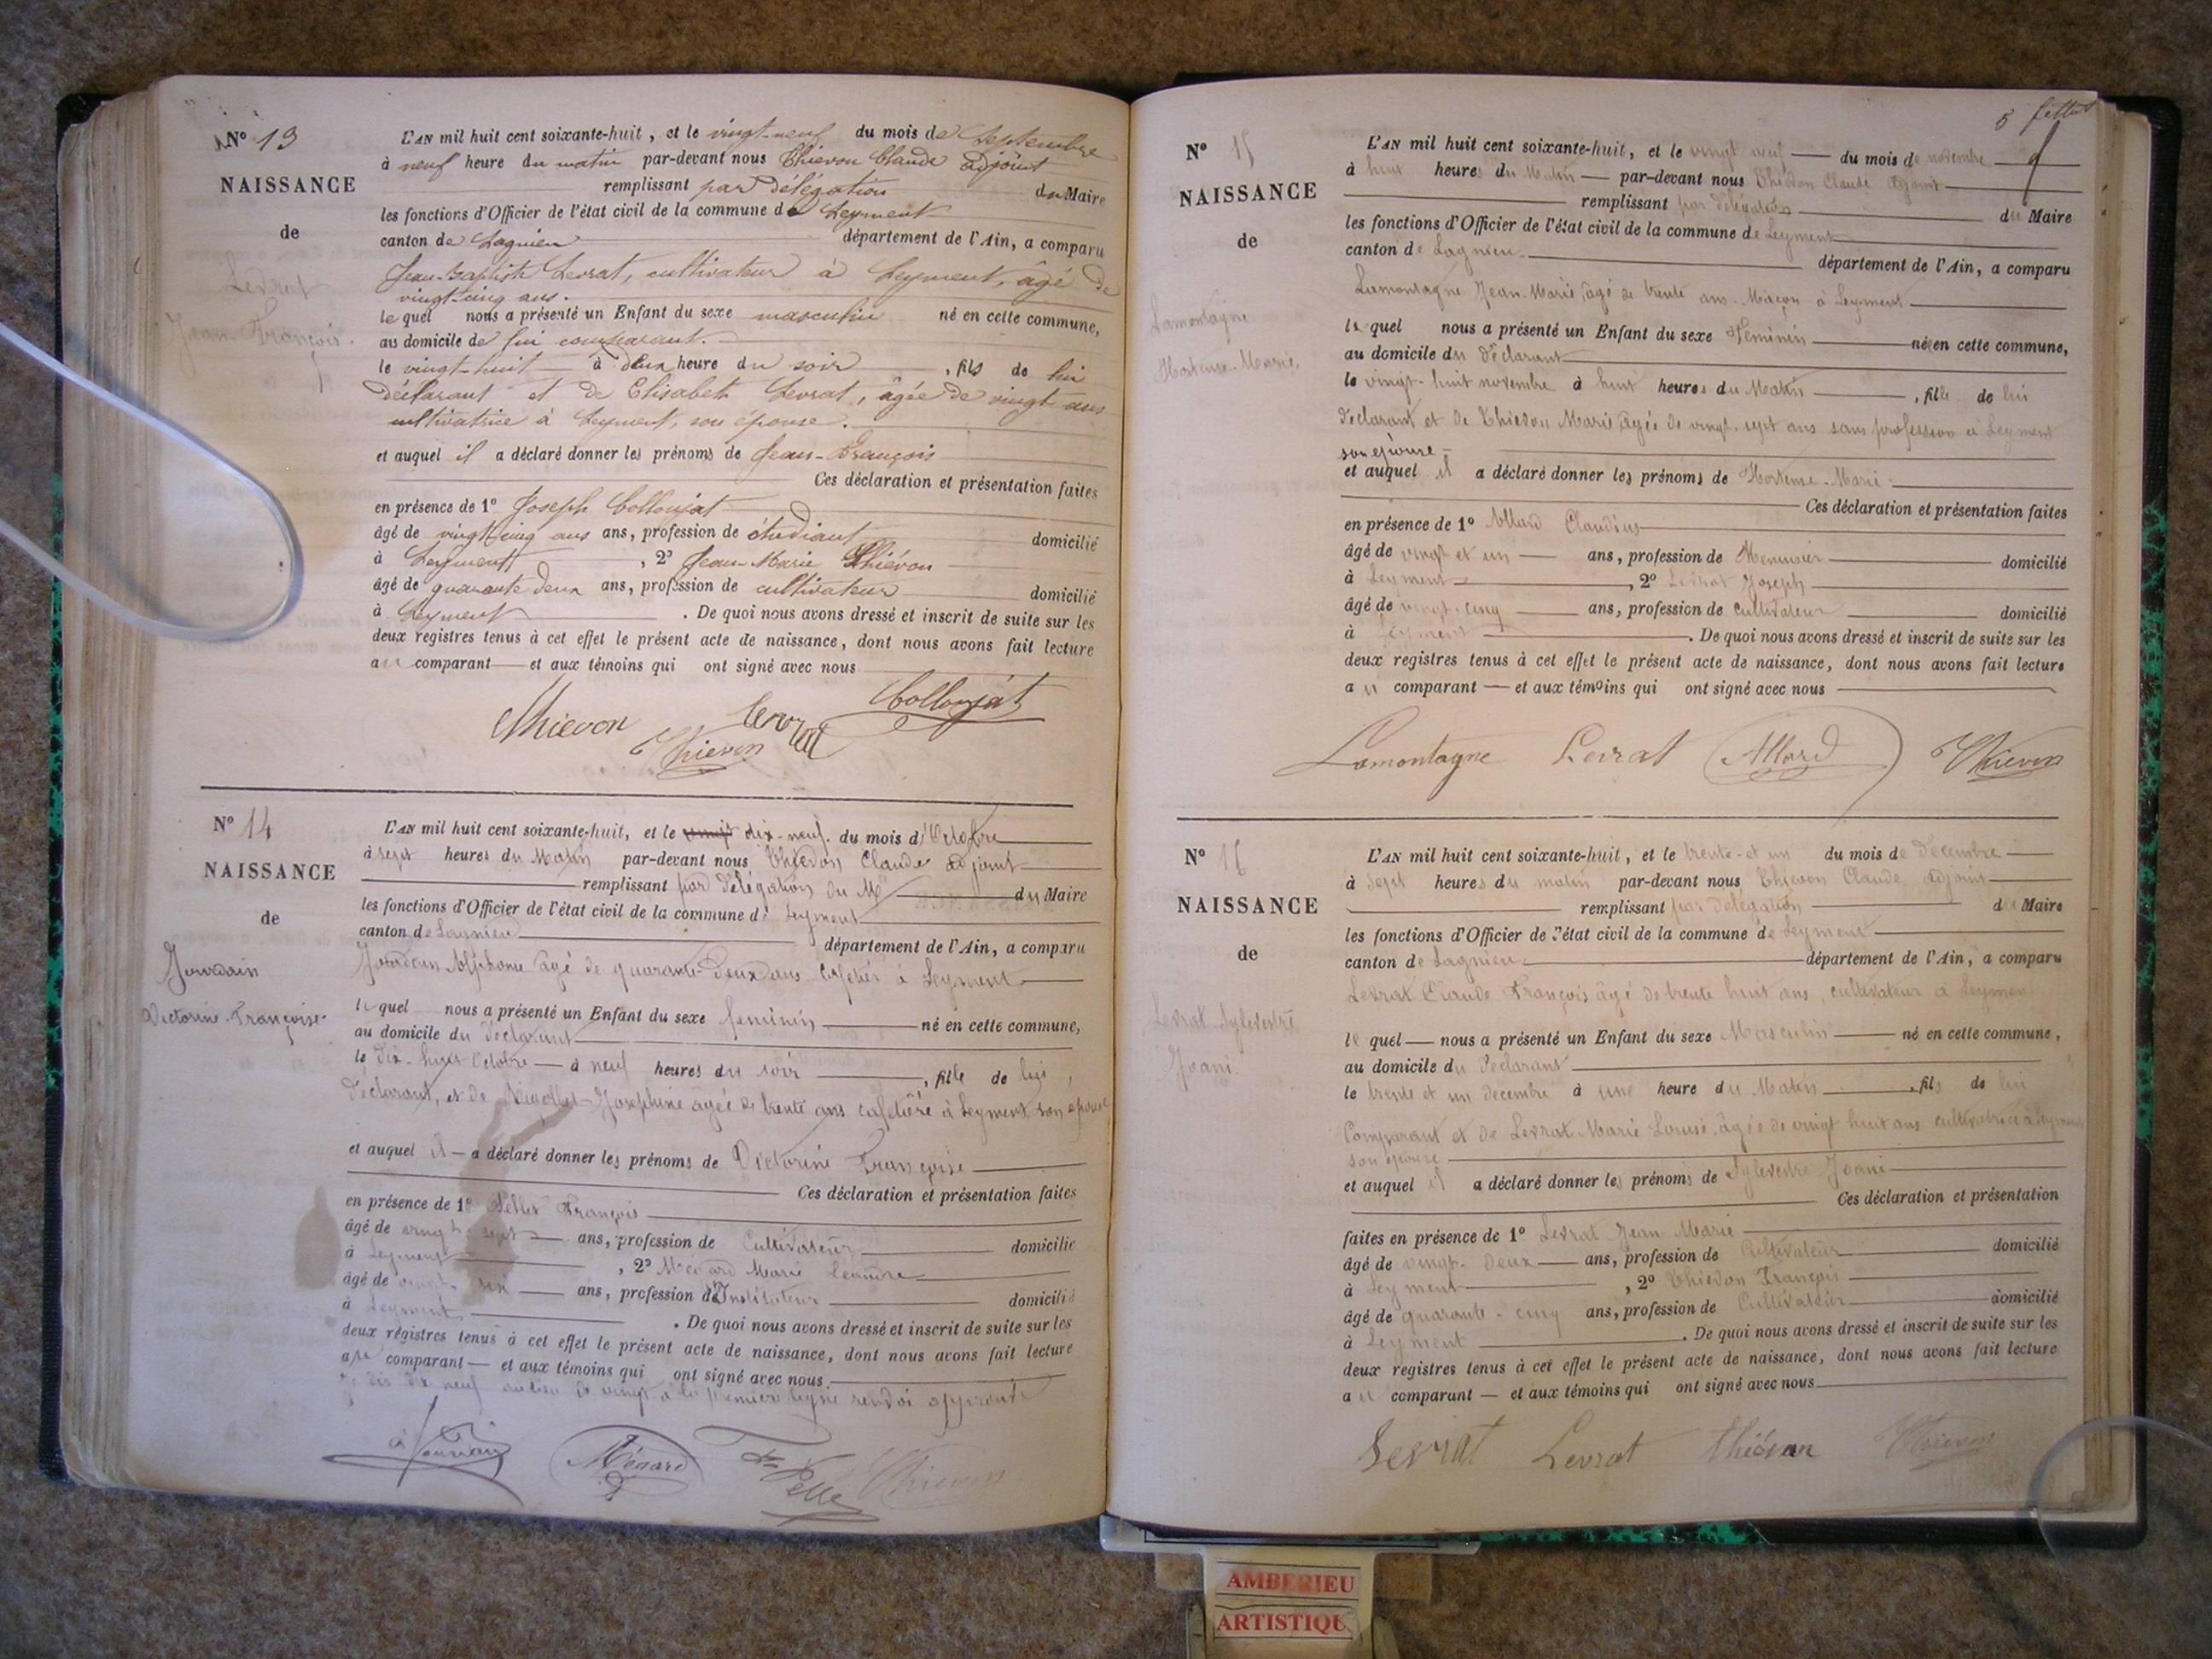 N° 13
NAISSANCE
de
Levrat
Jean-François.
L'AN mil huit cent soixante-huit, et le vingt-neuf du mois de Septembre
à neuf heure du matin par-devant nous Thievon Claude adjoint
remplissant par délégation du Maire
les fonctions d'Officier de l'état civil de la commune de Leyment
canton de Lagnieu département de l'Ain, a comparu
Jean-Baptiste Levrat, cultivateur à Leyment, âgé de
vingt-cinq ans.
lequel nous a présenté un Enfant du sexe masculin né en cette commune,
au domicile de lui comparant.
le vingt-huit à deux heure du soir, fils de lui
déclarant et de Elisabeth Levrat, âgée de vingt ans
cultivatrice à Leyment, son épouse.
et auquel il a déclaré donner les prénoms de Jean-François
Ces déclaration et présentation faites
en présence de 1° Joseph Colloujat
âgé de vingt cinq ans ans, profession de étudiant domicilié
à Leyment, 2° Jean-Marie Thiévon
âgé de quarante deux ans, profession de cultivateur domicilié
à Leyment. De quoi nous avons dressé et inscrit de suite sur les
deux registres tenus à cet effet le présent acte de naissance, dont nous avons fait lecture
au comparant et aux témoins qui ont signé avec nous
Thievon Levrat Colloujat
Thievon
N° 14
NAISSANCE
de
Jourdain
Victorine-Françoise-
L'AN mil huit cent soixante-huit, et le vingt dix-neuf du mois d'Octobre
à sept heures du Matin par-devant nous Thievon Claude adjoint
remplissant par délégation du M du Maire
les fonctions d'Officier de l'état civil de la commune de Leyment
canton de Lagnieu département de l'Ain, a comparu
Jourdain Alphonse âgé de quarante-deux ans Cafetier à Leyment
lequel nous a présenté un Enfant du sexe feminin né en cette commune,
au domicile du déclarant
le dix-huit Octobre à neuf heures du soir, fille de lui,
déclarant, et de Josephine agée de trente ans cafetière à Leyment son épouse
et auquel il a déclaré donner les prénoms de Victorine Françoise
Ces déclaration et présentation faites
en présence de 1° Pellet François
âgé de vingt-sept ans, profession de Cultivateur domicilié
à Leyment, 2° Ménard Marie Leandre
âgé de vingt-six ans, profession de Instituteur domicilié
à Leyment. De quoi nous avons dressé et inscrit de suite sur les
deux régistres tenus à cet effet le présent acte de naissance, dont nous avons fait lecture
au comparant et aux témoins qui ont signé avec nous
Je dis dix neuf au lieu de vingt à la premier ligne renvoi approuvé
a Jourdain Ménard Thievon
8 feuillet
N° 15
NAISSANCE
de
Lamontagne
Hortense-Marie.
L'AN mil huit cent soixante-huit, et le vingt neuf du mois de novembre
à huit heures du Matin par-devant nous Thievon Claude adjoint
remplissant par délégation du Maire
les fonctions d'Officier de l'état civil de la commune de Leyment
canton de Lagnieu département de l'Ain, a comparu
Lamontagne Jean-Marie âgé de trente ans Maçon à Leyment
lequel nous a présenté un Enfant du sexe Feminin né en cette commune,
au domicile du déclarant
le vingt-huit novembre à huit heures du Matin, fille de lui
declarant et de Thievon Marie agée de vingt-sept ans sans profession à Leyment
son épouse
et auquel il a déclaré donner les prénoms de Hortense-Marie
Ces déclaration et présentation faites
en présence de 1° Allard Claudius
âgé de vingt et un ans, profession de Menuisier domicilié
à Leyment, 2° Levrat Joseph
âgé de vingt-cinq ans, profession de Cultivateur domicilié
à Leyment. De quoi nous avons dressé et inscrit de suite sur les
deux registres tenus à cet effet le présent acte de naissance, dont nous avons fait lecture
au comparant et aux témoins qui ont signé avec nous
Lamontagne Levrat Allard Thievon
N° 16
NAISSANCE
de
Levrat Sylevestre
Joani.
L'AN mil huit cent soixante-huit, et le trente-et un du mois de decembre
à sept heures du matin par-devant nous Thievon Claude adjoint
remplissant par delegation du Maire
les fonctions d'Officier de l'état civil de la commune de Leyment
canton de Lagnieu département de l'Ain, a comparu
Levrat Claude François âgé de trente huit ans, cultivateur à Leyment
lequel nous a présenté un Enfant du sexe Masculin né en cette commune,
au domicile du declarant
le trente et un decembre à une heure du Matin, fils de lui
Comparant et de Levrat Marie agée de vingt huit ans cultivatrice à Leyment
son épouse
et auquel il a déclaré donner les prénoms de Sylevestre Joani
Ces déclaration et présentation
faites en présence de 1° Levrat Jean Marie
âgé de vingt-deux ans, profession de Cultivateur domicilié
à Leyment, 2° Thievon François
âgé de quarante-cinq ans, profession de Cultivateur domicilié
à Leyment. De quoi nous avons dressé et inscrit de suite sur les
deux registres tenus à cet effet le présent acte de naissance, dont nous avons fait lecture
au comparant et aux témoins qui ont signé avec nous
Levrat Levrat thiévon Thievon
AMBERIEU
ARTISTIQUE